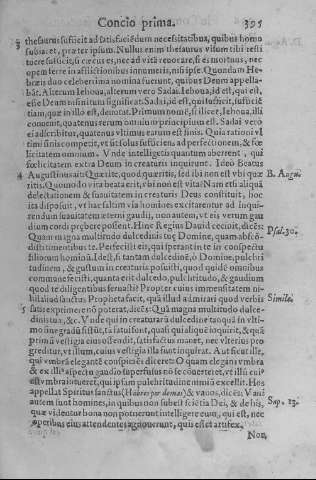 Concio prima. 395
3 thesaurus sufficit ad satisfaciēdum necessitatibus, quibus homo
subiacet, præter ipsum. Nullus enim thesaurus visum tibi resti
tuere sufficit, si cæcus es, nec ad vitā revocare, si es mortuus, nec
opem terre in afflictionibus innumeris, nisi ipse. Quondam He-
bræis duo celeberrima nomina fuerunt, quibus Deum appella-
bāt. Alterum Iehoua, alterum vero Sadai. Iehoua, id est, qui est,
esse Deam significat. Sadai, id est, qui sufficit, sufficiē
tiam, quæ in illo est, denotat. Primum nomē, si licet, Iehoua, illi
conuenit, quatenus rerum omniū principium est. Sadai vero
ei adscribitur, quatenus vltimus earum est finis. Quia rationi vl
timi finis competit, vt sit solus sufficiens ad perfectionem, & fœ
licitatem omniū. Vnde intelligetis quantum aberrent, qui
fœlicitatem extra Deum in creaturis inquirunt. Ideo Beatus
4 Augustinus ait: Quærite, quod quæritis, sed ibi non est vbi quæ B. Augu.
ritis. Quomodo vita beata erit, vbi non est vita? Nam etsi aliquā
delectationem & suauitatem in creaturis Deus constituit, hoc
ita disposuit, vt hac saltim via homines excitarentur ad inqui-
rendum suauitatem æterni gaudij, non autem, vt eis verum gau
dium cordi præbere possent. Hinc Regius Dauid cecinit, dicēs:
Quam magna multitudo dulcedinis tuæ Domine, quam abscō- Psal. 30.
disti timentibus te. Perfecisti eis, qui sperant in te in conspectu
filiorum hominū. Idest, si tantam dulcedinē, ô Domine, pulchri
tudinem, & gustum in creaturis posuisti, quod quidē omnibus
commune fecisti, quanta erit dulcedo, pulchritudo, & gaudium
quod te diligentibus seruasti? Propter cuius immensitatem ni-
hil aliud sanctus Propheta facit, quā illud admirari quod verbis Simile.
5 satis exprimere nō poterat, dicēs: Quā magna multitudo dulce-
dinis tuæ, &c. Vnde qui in creaturarū dulcedine tanquā in vlti-
mo fine gradū sistūt, ta satui sunt, quasi qui aliquē inquirit, & quā
primū vestigia eius ostendit, satisfactus manet, nec vlterius pro
greditur, vt illum, cuius vestigia illa sunt inquirat. Aut sicut ille,
qui vmbrā elegantē conspiciēs diceret: O quam elegans vmbra
& ex illi⁹ aspectu gaudio superfusus nō se cōuerteret, vt illū cui⁹
est vmbra intueret, qui ipsam pulchritudine nimiū excellit. Hos
appellat Spiritus sanctus & vanos, dicēs: Vani
autem sunt homines, in quibus non subest sciētia Dei, & de his, Sap. 13.
quæ videntur bona non potuerunt intelligere eum, qui est, nec
operibus eius attendentes agnouerunt, quis esset artifex.
Non,